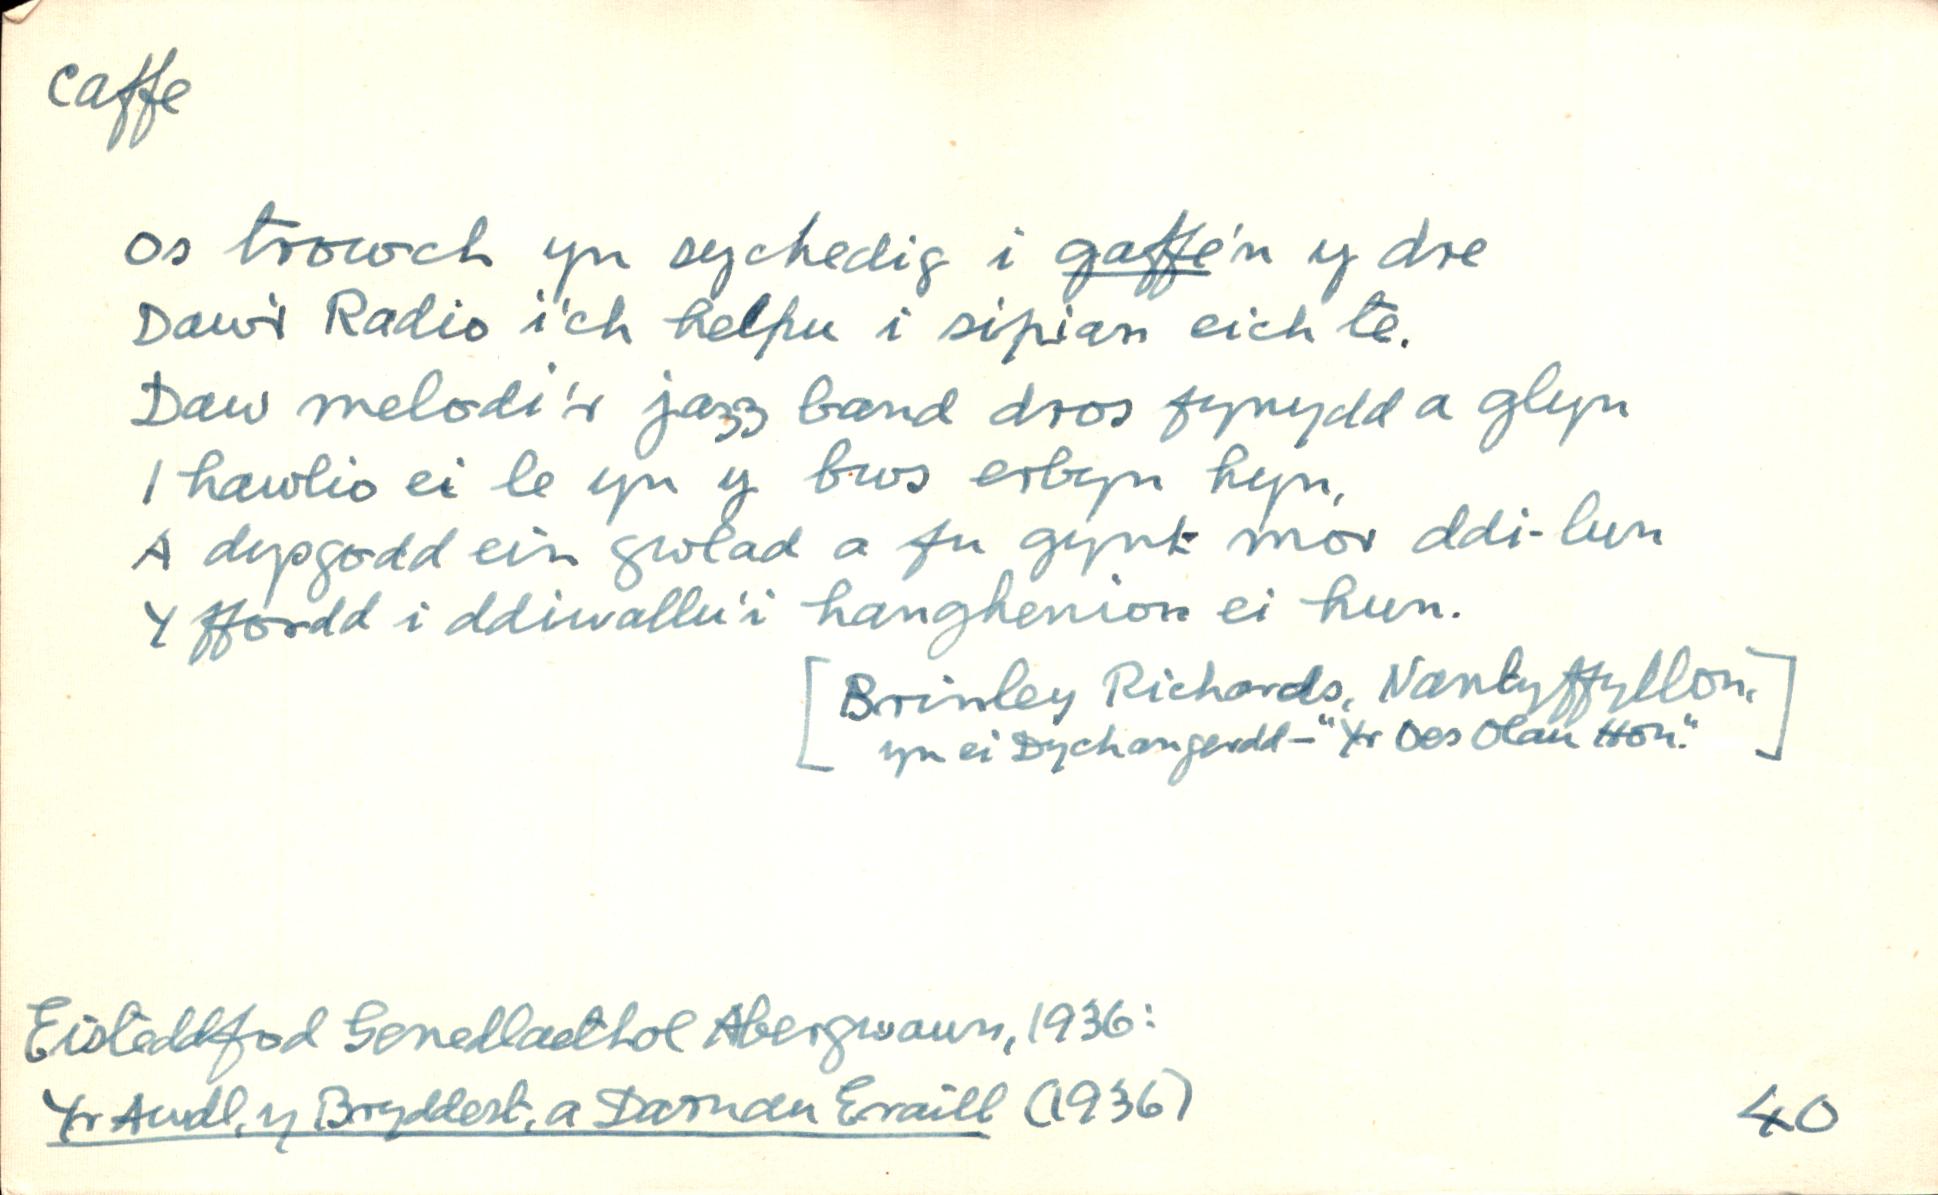 caffe
os trowch yn sychedig i gaffe'n y dre
Daw'r Radio i'ch helpu i sipian eich te.
Daw melodi'r jazz band dros fynydd a glyn
I hawlio ei le yn y bws erbyn hyn,
A dysgodd ein gwlad a fu gynt mor ddi-lun
Y ffordd i ddiwallu'i hanghenion ei hun.
[Brinley Richards, Nantyffyllon,
yn ei Dychangerdd - "Yr Oes Olau Hon."]
Eisteddfod Genedlaethol Abergwaun, 1936:
Yr Awdl, y Bryddest, a Darnau Eraill (1936)
40